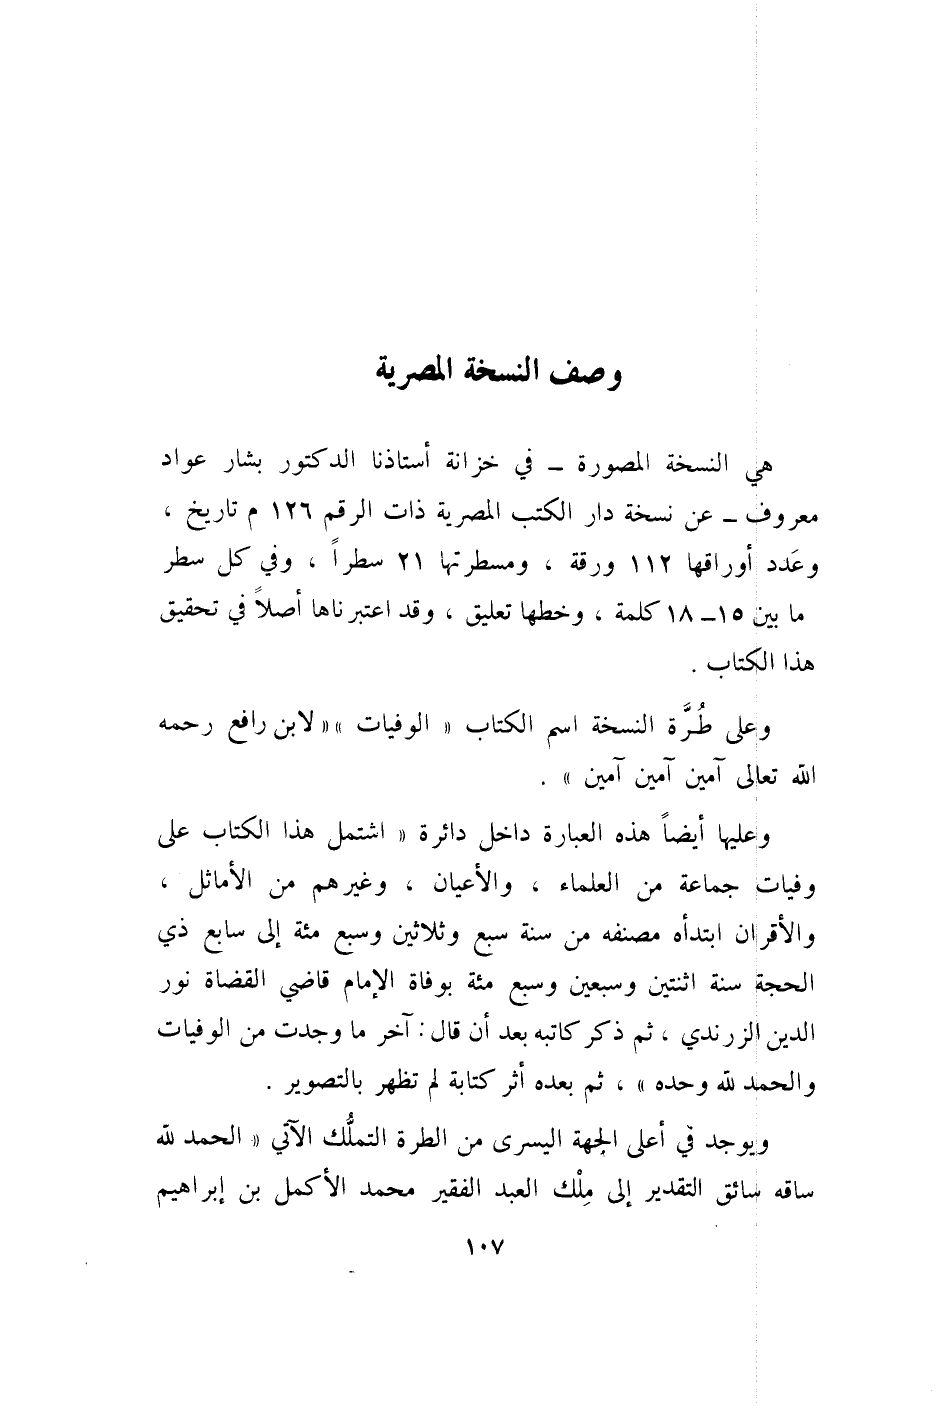 وصف النسخة المصرية
هي النسخة المصورة ــ في خزانة أستاذنا الدكتور بشار عواد
معروف ــ عن نسخة دار الكتب المصرية ذات الرقم ١٢٦ م تاريخ ،
وعَدد أوراقها ١١٢ ورقة ، ومسطرتها ٢١ سطراً ، وفي كل سطر
ما بين ١٥ــ ١٨ كلمة ، وخطها تعليق ، وقد اعتبرناها أصلاً في تحقيق
هذا الكتاب .
وعلى طُرَّة النسخة اسم الكتاب « الوفيات »« لابن رافع رحمه
الله تعالى آمين آمين آمين » .
وعليها أيضاً هذه العبارة داخل دائرة « اشتمل هذا الكتاب على
وفيات جماعة من العلماء ، والأعيان ، وغيرهم من الأماثل ،
والأقران ابتدأه مصنفه من سنة سبع وثلاثين وسبع مئة إلى سابع ذي
الحجة سنة اثنتين وسبعين وسبع مئة بوفاة الإمام قاضي القضاة نور
الدين الزرندي ، ثم ذكر كاتبه بعد أن قال : آخر ما وجدت من الوفيات
والحمد لله وحده » ، ثم بعده أثر كتابة لم تظهر بالتصوير .
ويوجد في أعلى الجهة اليسرى من الطرة التملُّك الآتي « الحمد لله
ساقه سائق التقدير إلى مِلْك العبد الفقير محمد الأكمل بن إبراهيم
١٠٧